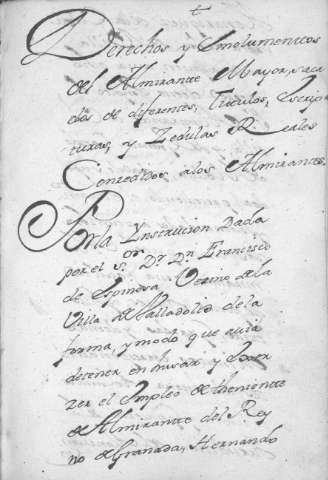 Derechos y Emolumentos
del Almirante Mayor, saca
dos de diferentes, Titulos, Escrip
turas, y Zedulas Reales
Concedidos alos Almirantes.
Por la Ynstruccion Dada
por el Sor. Dr. Dn. Francisco
de Espinosa Vezino de la
Villa de Valladolid de la
forma, y modo que avia
detener en husar y Exer
zer el Empleo de theniente
de Almirantte del Rey
no de Granada, Hernando